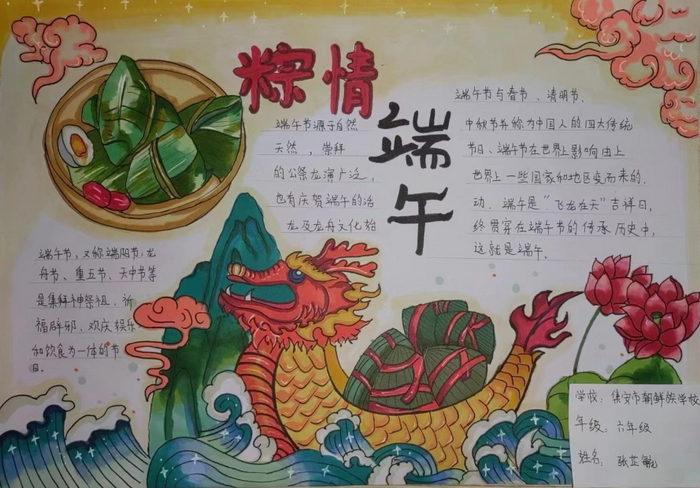 粽情
端午
端午节源于自然
天然，崇拜
的公祭龙演广泛，
也有庆贺端午的活
龙及龙舟文化始
端午节与春节、清明节、
中秋节并称为中国人的四大传统
节日、端午节在世界影响由上
世界上一些国家和地区变而来的.
动.端午是“飞龙在天”吉祥日，
终贯穿在端午节的传承历史中，
这就是端午。
端午节，又称端阳节，龙
舟节、重五节、天中节等
是集拜神祭祖，祈
福辟邪，欢庆娱乐
和饮食为一体的节
日。
学校：集安市朝鲜族学校
年级：六年级
姓名：张芷毓